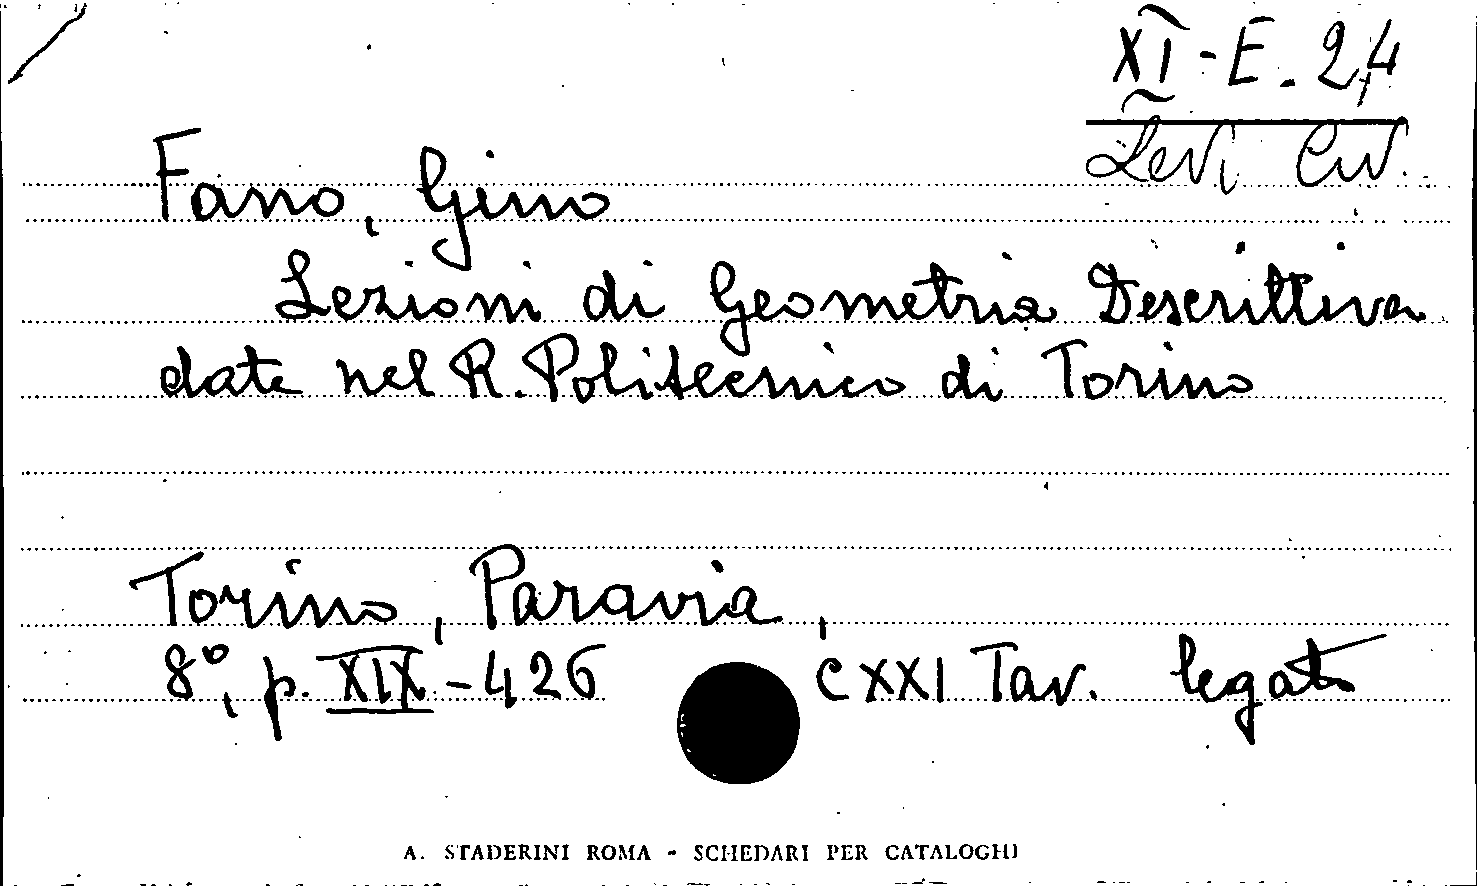 XI - E. 24
Levi Civ.
Fano, Gino
Lezioni di Geometria Descrittiva
date nel R. Politecnico di Torino
Torino, Paravia,
8°, p. XIX - 426 CXXI Tav. legato
A. STADERINI ROMA - SCHEDARI PER CATALOGHI